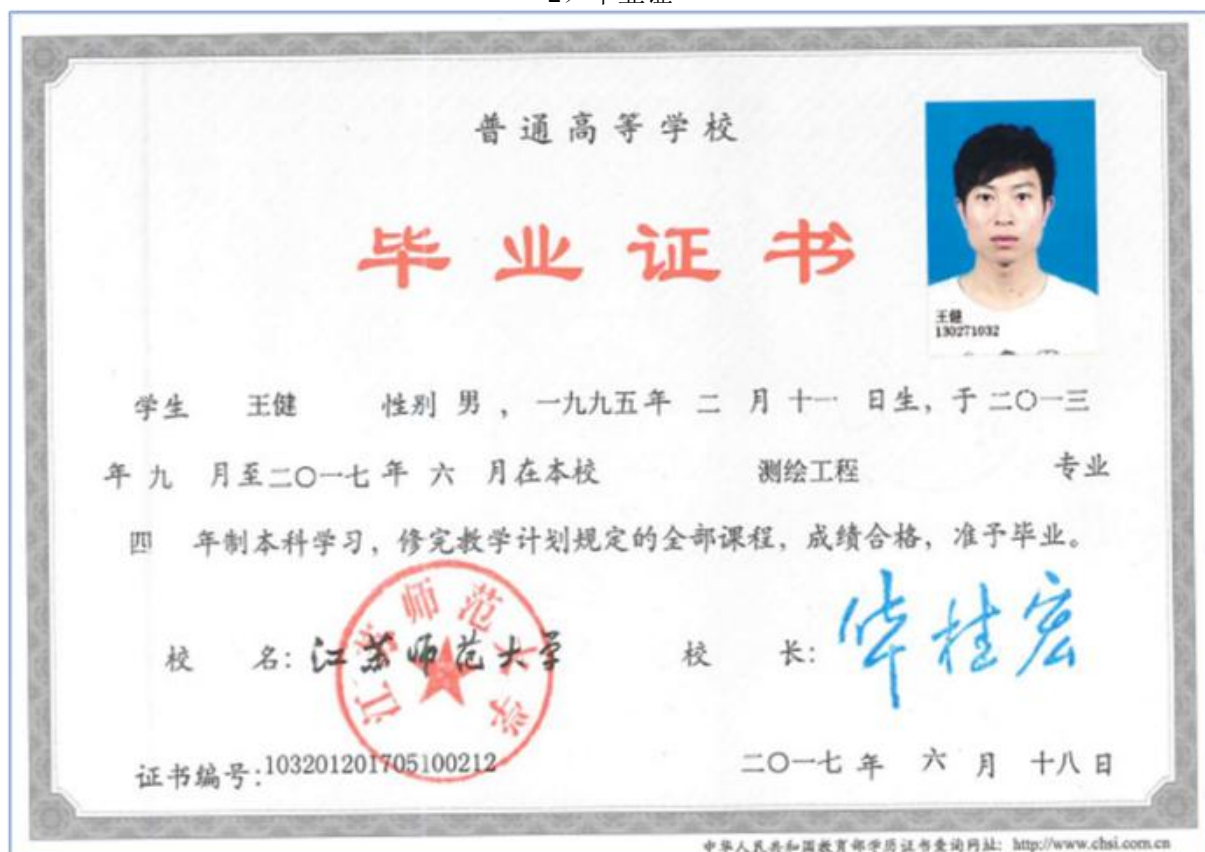 2）毕业证
普通高等学校
毕业证书
王健
130271032
学生 王健 性别 男 ，一九九五年 二 月 十一 日生，于 二〇一三
年 九 月至二〇一七 年 六 月在本校 测绘工程 专业
四 年制本科学习，修完教学计划规定的全部课程，成绩合格，准予毕业。
江苏师范大学
校 名：江苏师范大学 校 长：华桂宏
证书编号：103201201705100212 二〇一七 年 六 月 十八 日
中华人民共和国教育部学历证书查询网址：http://www.chsi.com.cn